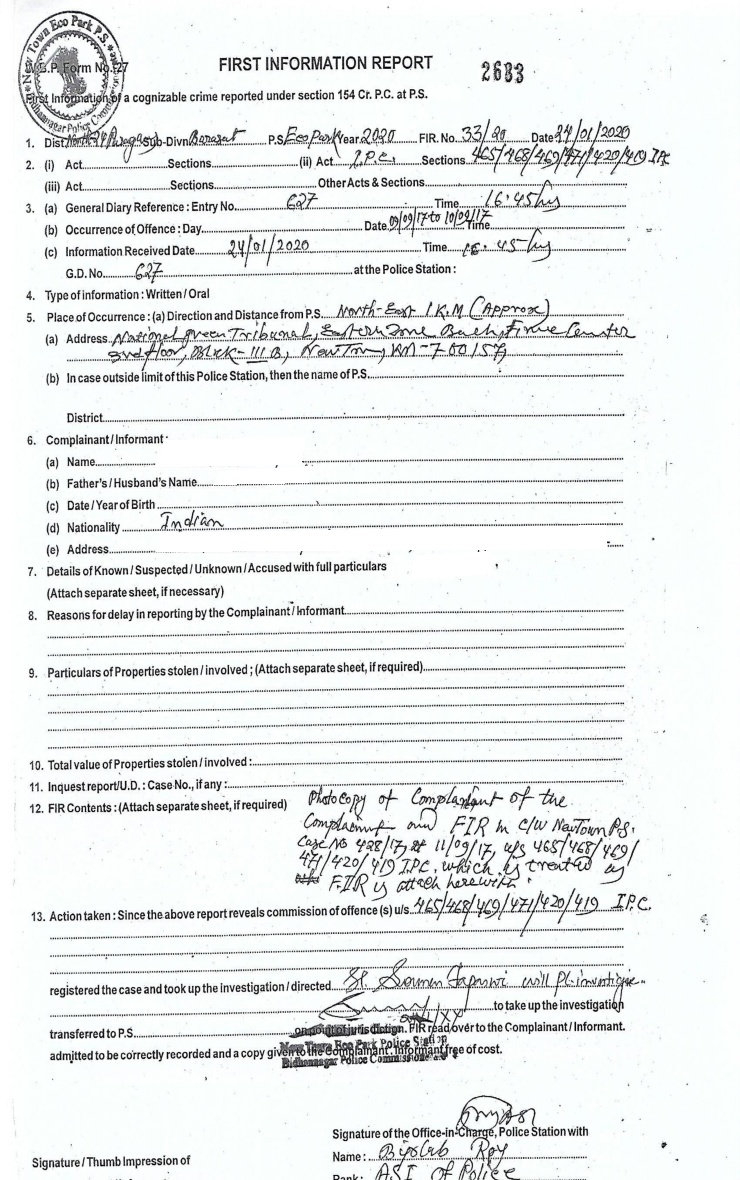 New Town Eco Park P.S.
Bidhannagar Police Commissionerate
W.B.P. Form No. 27
FIRST INFORMATION REPORT
2683
First Information of a cognizable crime reported under section 154 Cr. P.C. at P.S.
1. Dist. North 24 Parganas Sub-Divn. Barasat P.S. Eco Park Year 2020 FIR. No. 33/20 Date 24/01/2020
2. (i) Act Sections (ii) Act I.P.C. Sections 465/468/469/471/420/419 IPC
(iii) Act Sections Other Acts & Sections
3. (a) General Diary Reference : Entry No. 627 Time 16:45 hrs
(b) Occurrence of Offence : Day Date 09/09/17 to 10/09/17 Time
(c) Information Received Date 24/01/2020 Time 16:45 hrs
G.D. No. 627 at the Police Station :
4. Type of information : Written / Oral
5. Place of Occurrence : (a) Direction and Distance from P.S. North-East 1 K.M (Approx)
(a) Address National green Tribunal, Eastern Zone Finance Center
floor, Block-III B, New Town,
(b) In case outside limit of this Police Station, then the name of P.S.
District
6. Complainant / Informant
(a) Name
(b) Father's / Husband's Name
(c) Date / Year of Birth
(d) Nationality Indian
(e) Address
7. Details of Known / Suspected / Unknown / Accused with full particulars
(Attach separate sheet, if necessary)
8. Reasons for delay in reporting by the Complainant / Informant
9. Particulars of Properties stolen / involved ; (Attach separate sheet, if required)
10. Total value of Properties stolen / involved :
11. Inquest report/U.D. : Case No., if any :
12. FIR Contents : (Attach separate sheet, if required) Photocopy of Complaint of the
and FIR in C/W New Town P.S.
Case No 428/17 dt 11/09/17, u/s 465/468/469/
471/420/419 I.P.C. which is treated as
F.I.R is attach herewith.
13. Action taken : Since the above report reveals commission of offence (s) u/s. 465/468/469/471/420/419 I.P.C.
registered the case and took up the investigation / directed SI Soumen will Pl. investigate
to take up the investigation
transferred to P.S. on point of jurisdiction. FIR read over to the Complainant / Informant.
New Town Eco Park Police Station
admitted to be correctly recorded and a copy given to the Complainant. Informant free of cost.
Bidhannagar Police Commissionerate
Signature of the Office-in-Charge, Police Station with
Name : Biplab Roy
Signature / Thumb Impression of
Rank : ASI of Police